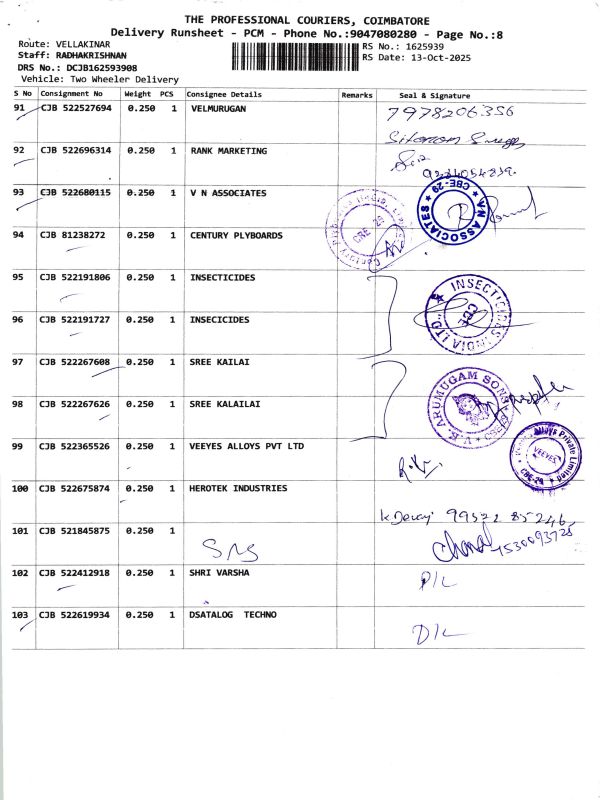 THE PROFESSIONAL COURIERS, COIMBATORE
Delivery Runsheet - PCM - Phone No.:9047080280 - Page No.:8
Route: VELLAKINAR
RS No.: 1625939
Staff: RADHAKRISHNAN
RS Date: 13-Oct-2025
DRS No.: DCJB162593908
Vehicle: Two Wheeler Delivery
S No Consignment No Weight PCS Consignee Details Remarks Seal & Signature
91 CJB 522527694 0.250 1 VELMURUGAN 7978206356
92 CJB 522696314 0.250 1 RANK MARKETING
93 CJB 522680115 0.250 1 V N ASSOCIATES
VN ASSOCIATES CBE-29
94 CJB 81238272 0.250 1 CENTURY PLYBOARDS
95 CJB 522191806 0.250 1 INSECTICIDES
INSECTICIDES INDIA LTD CBE
96 CJB 522191727 0.250 1 INSECICIDES
97 CJB 522267608 0.250 1 SREE KAILAI
98 CJB 522267626 0.250 1 SREE KALAILAI
V.K. ARUMUGAM SONS
99 CJB 522365526 0.250 1 VEEYES ALLOYS PVT LTD
VEEYES Private Limited CBE-29
100 CJB 522675874 0.250 1 HEROTEK INDUSTRIES
K. Devaj 99522 85246
101 CJB 521845875 0.250 1 SMS
102 CJB 522412918 0.250 1 SHRI VARSHA D/L
103 CJB 522619934 0.250 1 DSATALOG TECHNO D/L